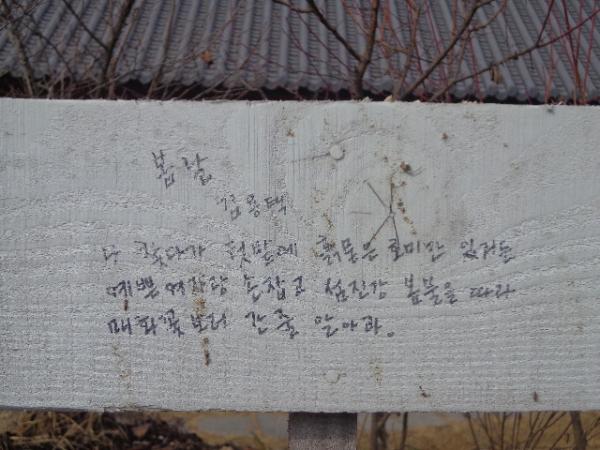 봄날
김용택
나 찾다가 텃밭에 흙묻은 호미만 있거든
예쁜 여자랑 손잡고 섬진강 봄물을 따라
매화꽃 보러 간 줄 알아라.